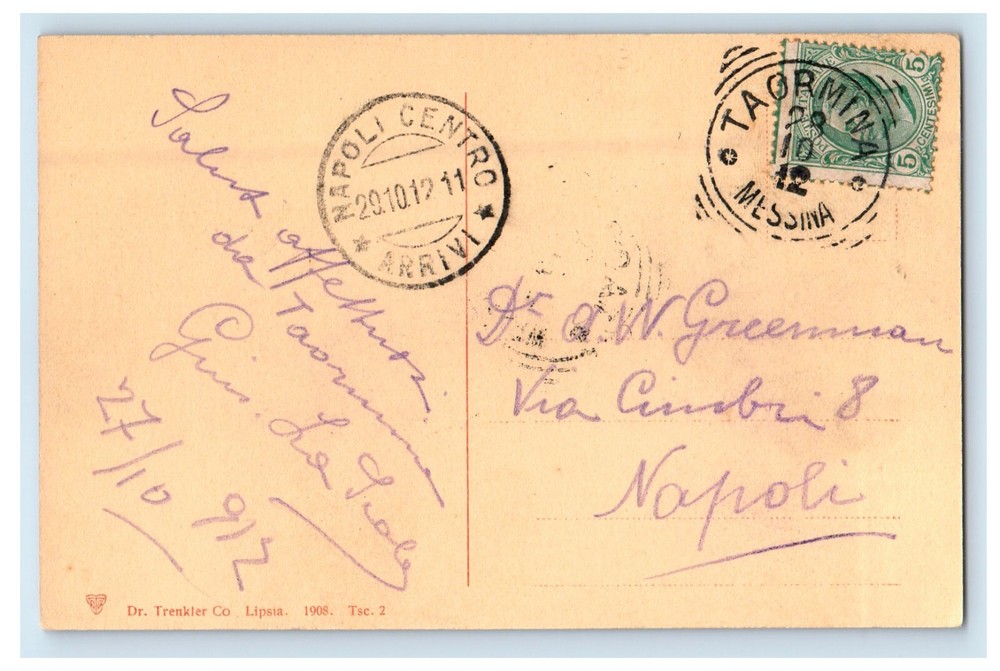 Saluti affettuosi
da Taormina
Gius. La
27/10 912
NAPOLI CENTRO
29.10.12 11
★ ARRIVI ★
TAORMINA
10
12
MESSINA
POSTE ITALIANE
5 CENTESIMI 5
Dr. A. W. Greenman
Via Cimbri 8
Napoli
Dr. Trenkler Co Lipsia. 1908. Tsc. 2